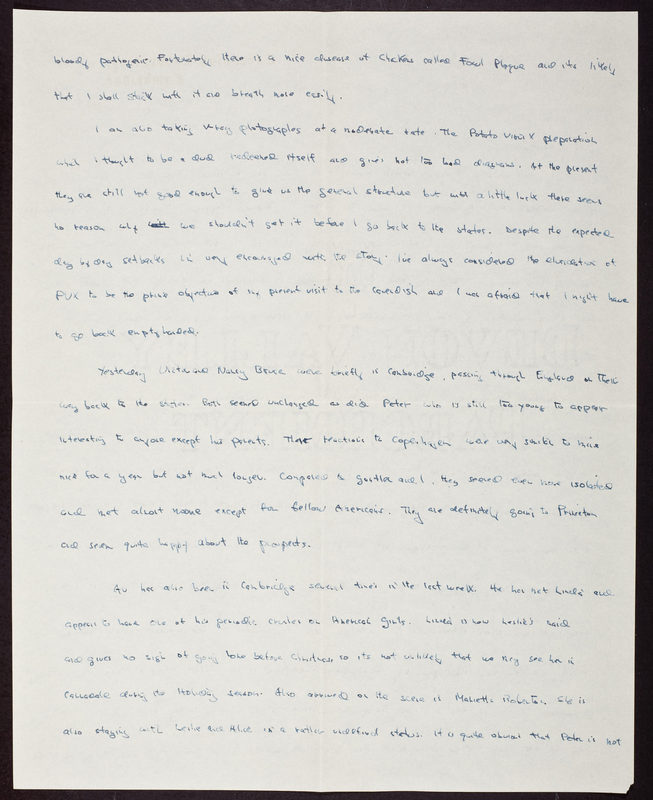 bloody pathogenic. Fortunately there is a nice disease of Chickens called Fowl Plague and its likely
that I shall stick with it and breath more easily.
I am also taking x-ray photographs at a moderate rate. The Potato Virus X preparation
which I thought to be a dud redeemed itself and gives not too bad diagrams. At the present
they are still not good enough to give us the general structure but with a little luck there seems
no reason why we shouldn't get it before I go back to the states. Despite the expected
day by day setbacks I'm very encouraged with the story. I've always considered the elucidation of
PVX to be the prime objective of my present visit to the Cavendish and I was afraid that I might have
to go back emptyhanded.
Yesterday Victor and Nancy Bruce were briefly in Cambridge, passing through England on their
way back to the states. Both seemed unchanged as did Peter who is still too young to appear
interesting to anyone except his parents. Their reactions to Copenhagen were very similar to mine
nice for a year but not much longer. Compared to Gunther and I, they seemed even more isolated
and met almost noone except for fellow Americans. They are definitely going to Princeton
and seem quite happy about the prospects.
Av has also been in Cambridge several times in the last week. He has met Linda and
appears to have one of his periodic crushes on American Girls. Linda is now Leslie's maid
and gives no sign of going home before Christmas so its not unlikely that we may see her in
during the Holiday season. Also arrived on the scene is Mariette Robertson. She is
also staying with Leslie and Alice in a rather undefined status. It is quite obvious that Peter is not